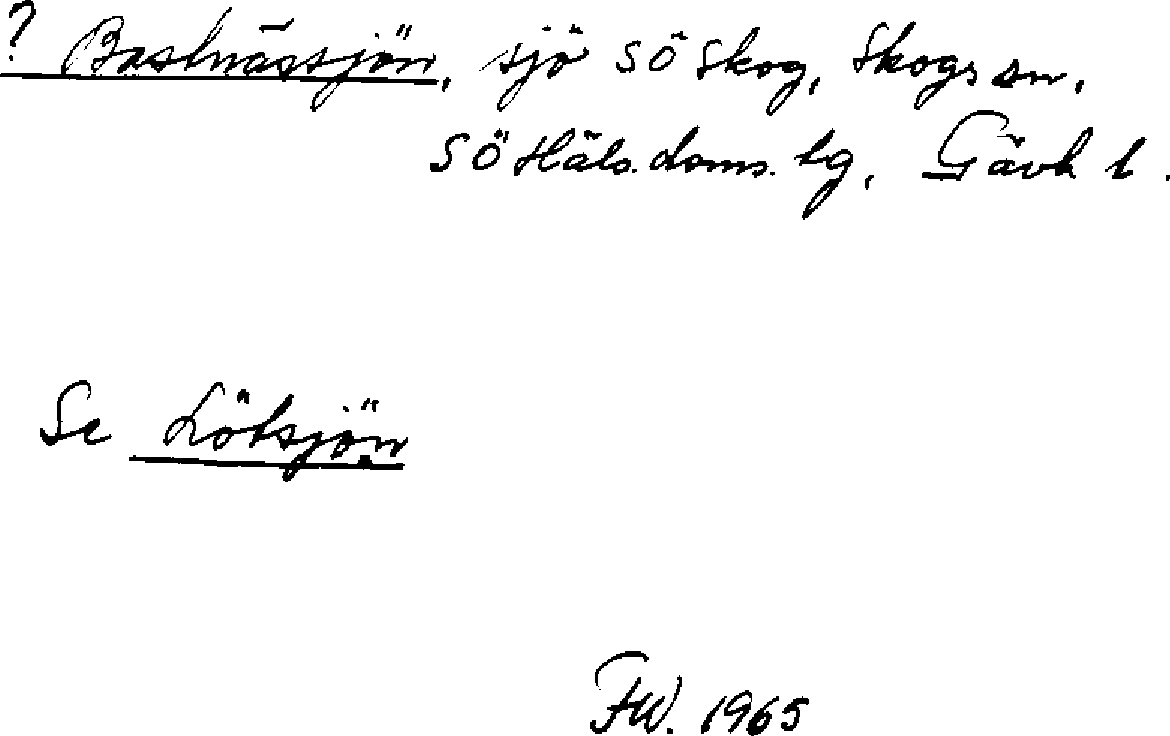 ? Bastnässjön, sjö SÖ Skog, Skogs sn,
SÖ Häls. doms. tg, Gävl l.
Se Lötsjön
FW. 1965